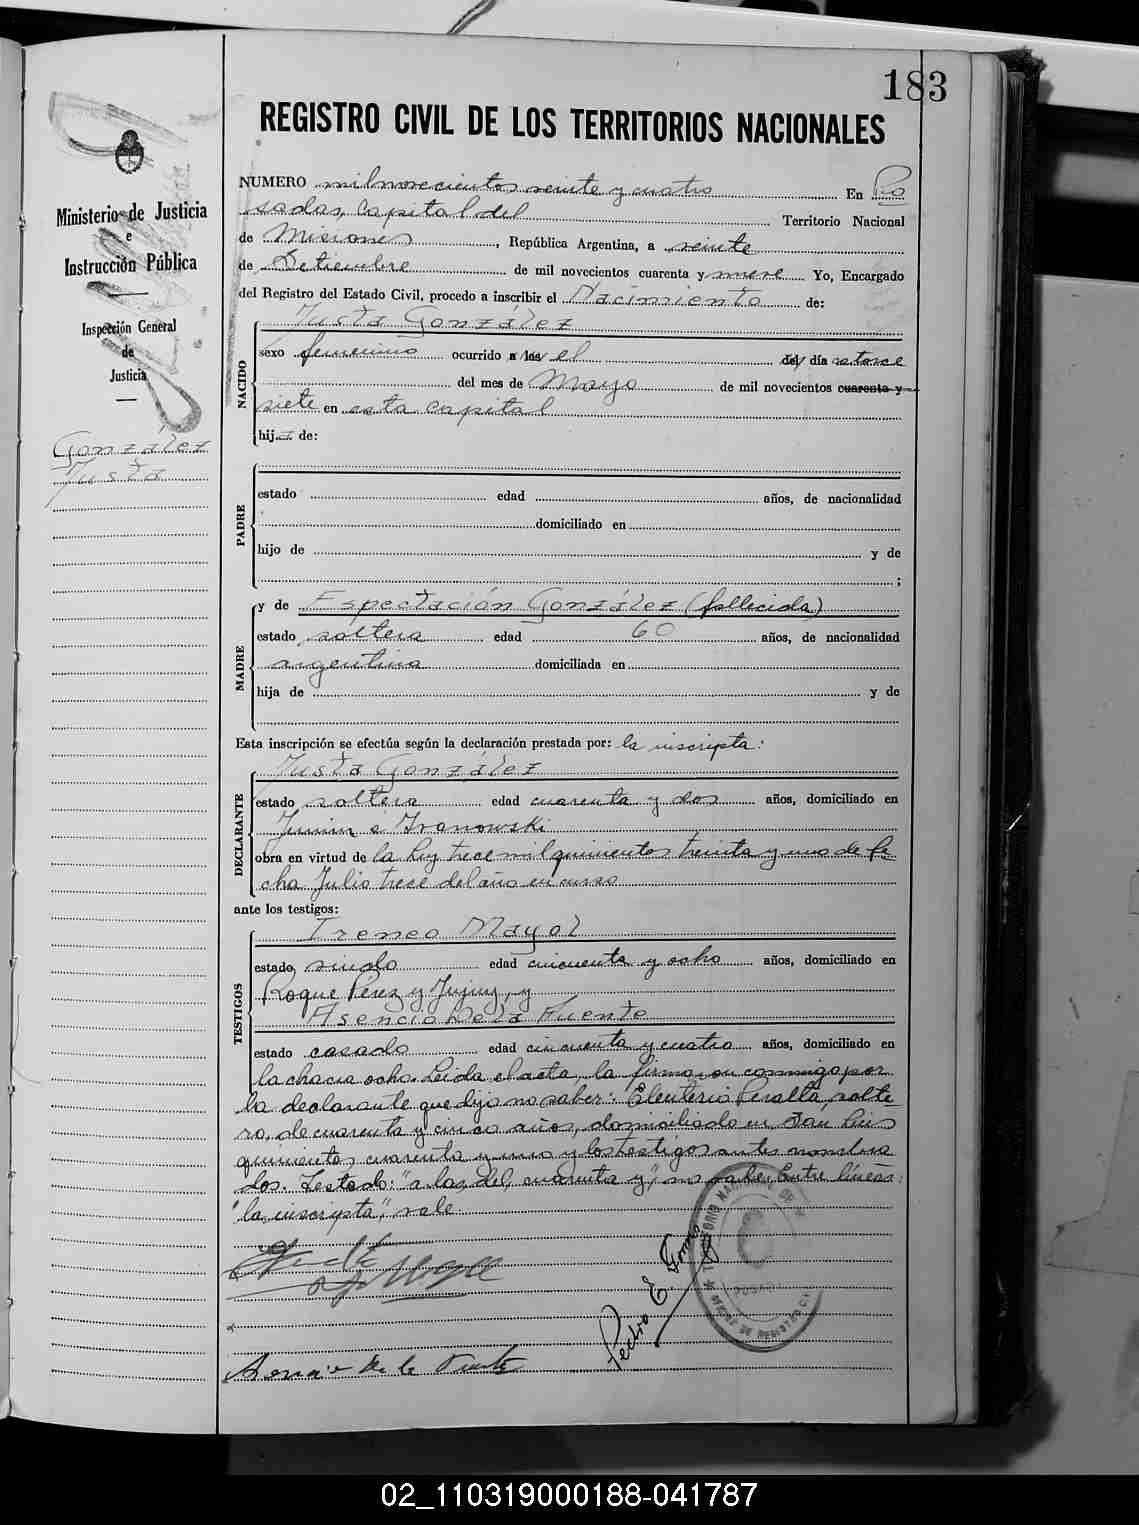 183
REGISTRO CIVIL DE LOS TERRITORIOS NACIONALES
Ministerio de Justicia
e
Instrucción Pública
Inspección General
de
Justicia
González
Justa
NUMERO mil novecientos veinte y cuatro En Po
sadas, Capital del Territorio Nacional
de Misiones, República Argentina, a veinte
de Setiembre de mil novecientos cuarenta y nueve Yo, Encargado
del Registro del Estado Civil, procedo a inscribir el Nacimiento de:
NACIDO
Justa González
sexo femenino ocurrido a las el del día catorce
del mes de Mayo de mil novecientos cuarenta y
siete en esta capital
hija de:
PADRE
estado edad años, de nacionalidad
domiciliado en
hijo de y de
;
MADRE
y de Espectación González (fallecida)
estado soltera edad 60 años, de nacionalidad
argentina domiciliada en
hija de y de
Esta inscripción se efectúa según la declaración prestada por: la inscripta:
DECLARANTE
Justa González
estado soltera edad cuarenta y dos años, domiciliado en
Junin é Ivanowski
obra en virtud de la ley trece mil quinientos treinta y uno de fe
cha Julio trece del año en curso
ante los testigos:
TESTIGOS
Ireneo Mayol
estado viudo edad cincuenta y ocho años, domiciliado en
Roque Perez y Jujuy, y
Asencio De la Fuente
estado casado edad cincuenta y cuatro años, domiciliado en
la chacra ocho. Leida el acta, la firmaron conmigo por
la declarante que dijo no saber: Eleuterio Peralta, solte-
ro, de cuarenta y cinco años, domiciliado en San Luis
quinientos cuarenta y uno y los testigos antes nombra
dos. Testado: "a las, del, cuarenta y", no vale. Entre lineas:
"la inscripta", vale
Pedro E.
POSADAS
OFICINA DE REGISTRO CIVIL
de la Fuente
02_110319000188-041787